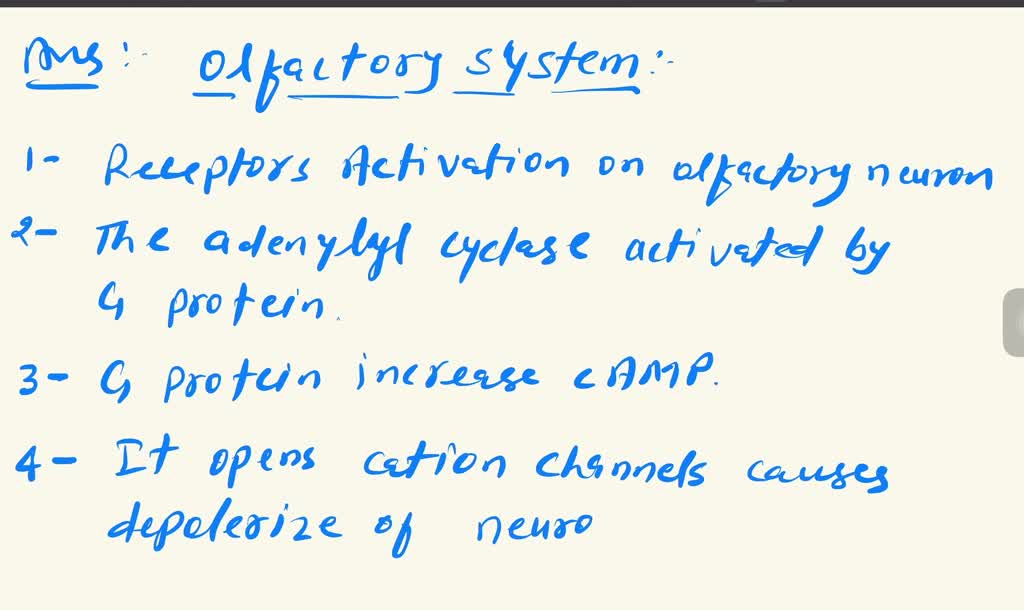 Ans :- Olfactory system :-
1- Receptors Activation on olfactory neuron
2- The adenylyl cyclase activated by
G protein.
3- G protein increase cAMP.
4- It opens cation channels causes
depolerize of neuro